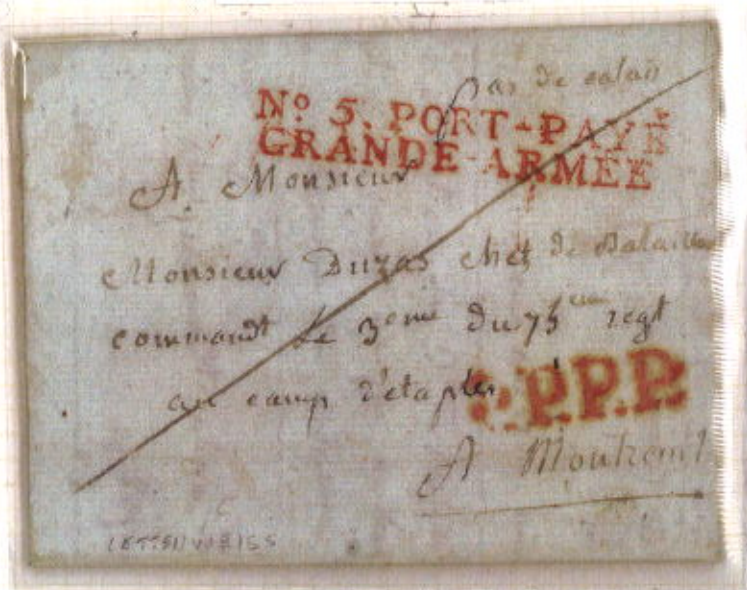 pas de calais
No 5. PORT-PAYÉ
GRANDE-ARMÉE
A Monsieur
Monsieur Duzas chef de Bataillon
commandt le 3eme du 75eme regt
au camp d'etaples
P.P.P.P.
A Montreuil